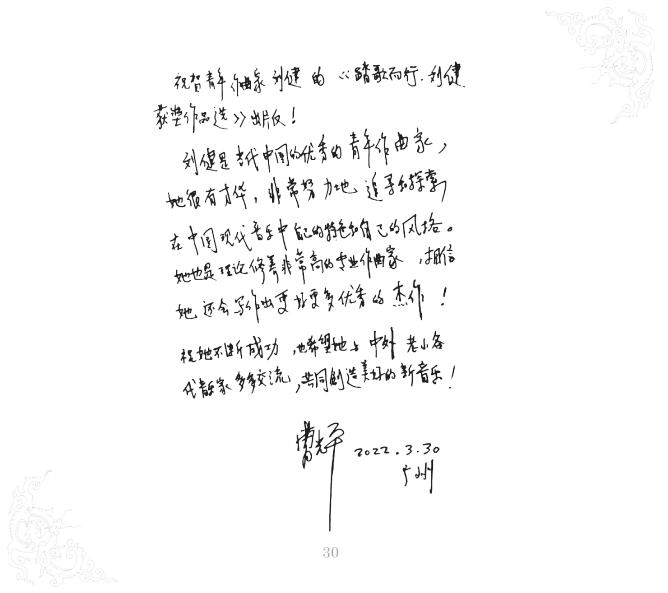 祝贺青年作曲家刘健的《踏歌而行·刘健
获奖作品选》出版！
刘健是当代中国的优秀的青年作曲家，
她很有才华，非常努力地追寻和探索
在中国现代音乐中自己的特色和自己的风格。
她也是理论修养非常高的专业作曲家，相信
她还会写作出更好更多优秀的杰作！
祝她不断成功，也希望她与中外老小各
代音乐家多多交流，共同创造美好的新音乐！
曹光平 2022.3.30
广州
30